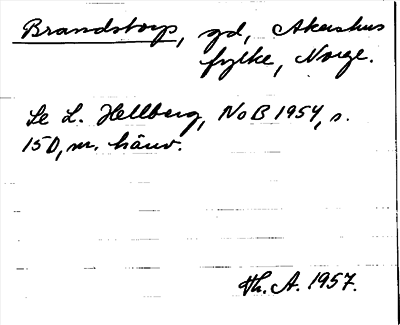 Brandstorp, gd, Akershus
fylke, Norge.
Se L. Hellberg, NoB 1954, s.
150, m. hänv.
Th. A. 1957.